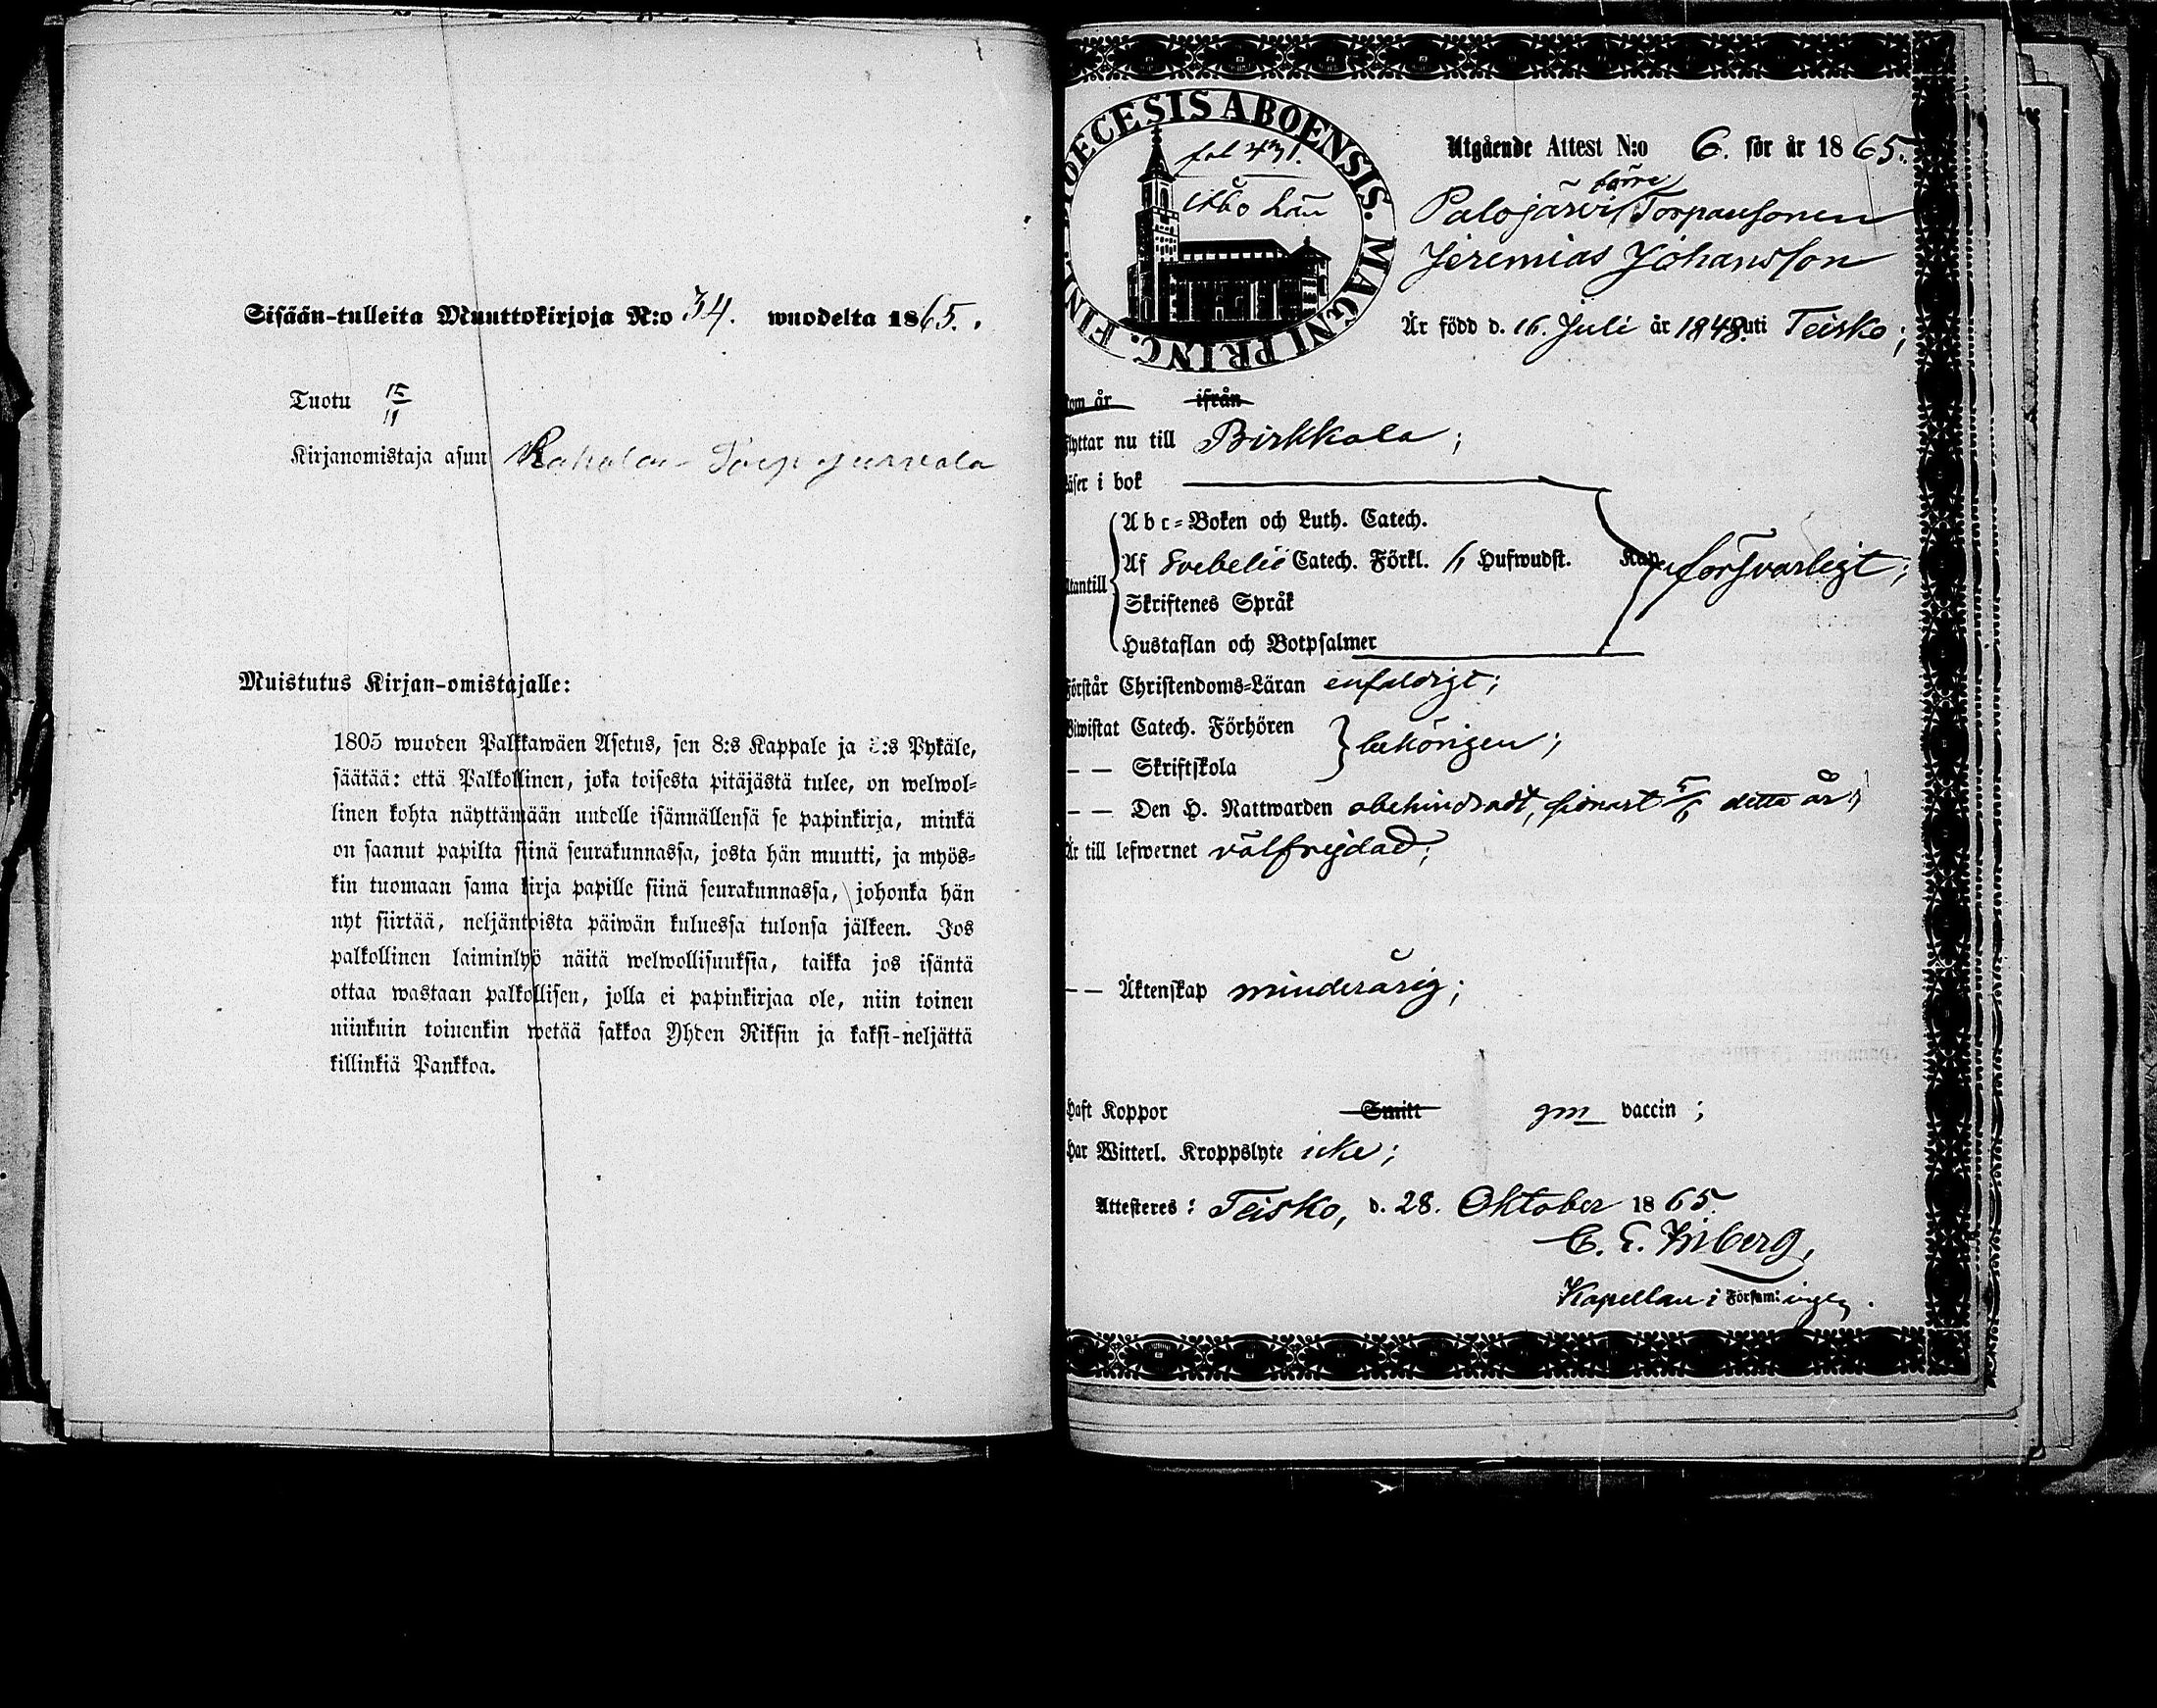 Sisään-tulleita Muuttokirjoja N:o 34. wuodelta 1865.
Tuotu 15/11
Kirjanomistaja asuu Rahola
Muistutus Kirjan-omistajalle:
1805 wuoden Palkkawäen Asetus, sen 8:s Kappale ja :s Pykäle,
säätää: että Palkollinen, joka toisesta pitäjästä tulee, on welwol=
linen kohta näyttämään uudelle isännällensä se papinkirja, minkä
on saanut papilta siinä seurakunnassa, josta hän muutti, ja myös=
kin tuomaan sama kirja papille siinä seurakunnassa, johonka hän
nyt siirtää, neljäntoista päiwän kuluessa tulonsa jälkeen. Jos
palkollinen laiminlyö näitä welwollisuuksia, taikka jos isäntä
ottaa wastaan palkollisen, jolla ei papinkirjaa ole, niin toinen
niinkuin toinenkin wetää sakkoa Yhden Riksin ja kaksi-neljättä
killinkiä Pankkoa.
DIOECESIS ABOENSIS. MAGNI PRINC. FINL.
fol 431.
Åbo Län
Utgående Attest N:o 6. för år 1865.
Palojärvi Torparesonen
Jeremias Johansson
Är född d. 16. Juli år 1848. uti Teisko;
kom år ifrån
Flyttar nu till Birkkala;
Läser i bok
Utantill
Abc=Boken och Luth. Catech.
Af Svebelii Catech. Förkl. Hufwudst. Kap. försvarligt;
Skriftenes Språk
Hustaflan och Botpsalmer
Förstår Christendoms=Läran enfaldigt;
Biwistat Catech. Förhören
behörigen;
— — Skriftskola
— — Den H. Nattwarden obehindradt, sednast 5/6 detta år;
Är till lefwernet välfrejdad;
— — Äktenskap minderårig;
Haft Koppor Smitt gm vaccin ;
Har Witterl. Kroppslyte icke;
Attesteres : Teisko, d. 28. Oktober 1865.
Kapellan i Försam:ingen.